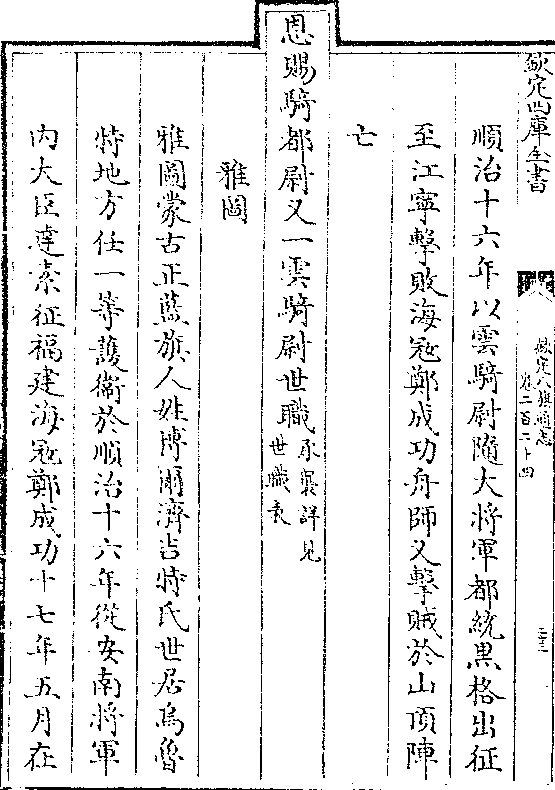 欽定四庫全書
欽定八旗通志
卷二百二十四
順治十六年以雲騎尉隨大將軍都統黒格出征
至江寧擊敗海冦鄭成功舟師又擊賊於山頂陣
亡
恩賜騎都尉又一雲騎尉世職承襲詳見
世職表
雅圖
雅圖蒙古正藍旗人姓博爾濟吉特氏世居烏魯
特地方任一等護衛於順治十六年從安南將軍
内大臣達素征福建海冦鄭成功十七年五月在